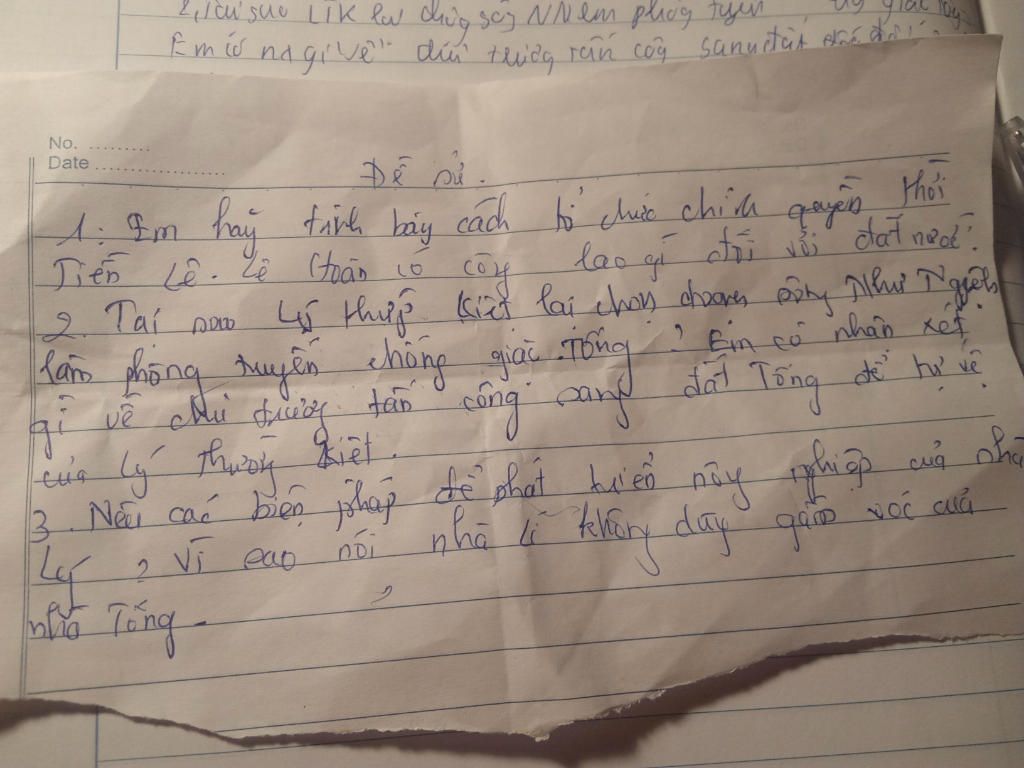 2, Tại sao LTK lại chọn sông NN làm phòng tuyến
Em có nx gì về chủ trương tấn công sang đất
No. .........
Date ......................
Đề sử.
1. Em hãy trình bày cách tổ chức chính quyền thời
Tiền Lê. Lê Hoàn có công lao gì đối với đất nước.
2. Tại sao Lý thường Kiệt lại chọn sông Như Nguyệt
làm phòng tuyến chống giặc Tống ? Em có nhận xét
gì về chủ trương tấn công sang đất Tống để tự vệ
của Lý thường Kiệt.
3. Nêu các biện pháp để phát triển nông nghiệp của nhà
Lý ? Vì sao nói nhà Lí không dây gồm vóc của
nhà Tống -